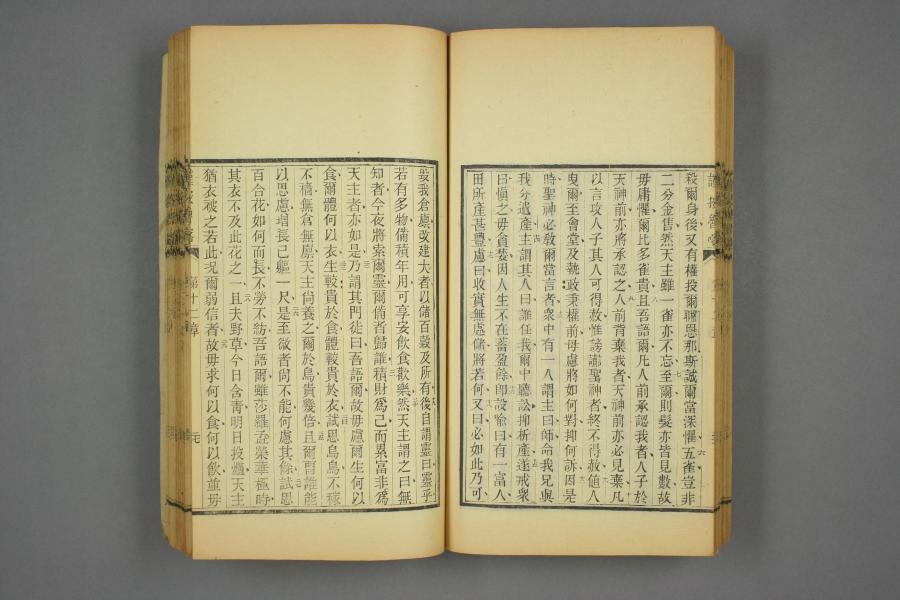 殺爾身後又有權投爾噷恩那斯誠爾當深懼五雀豈非
二分金售然天主雖一雀亦不忘至爾則髮亦皆見數故
毋庸懼爾比多雀貴且吾語爾凡人前承認我者人子於
天神前亦將承認之人前背棄我者天神前亦必見棄凡
以言攻人子其人可得赦惟謗讟聖神者終不得赦値人
曳爾至會堂及執政秉權前毋慮將如何對抑何訴因是
時聖神必敎爾當言者衆中有一人謂主曰師命我兄與
我分遺產主謂其人曰誰任我爾中聽訟抑析產遂戒衆
曰愼之毋貪婪因人生不在蓄盈餘即設喻曰有一富人
田所產甚豐慮曰收實無處儲將若何又曰必如此乃可
毀我倉廪改建大者以儲百穀及所有後自謂靈曰靈乎
若有多物備積年用可享安飲食歡樂然天主謂之曰無
知者今夜將索爾靈爾備者歸誰積財爲己而累富非爲
天主者亦如是乃謂其門徒曰吾語爾故毋慮爾生何以
食爾體何以衣生較貴於食體較貴於衣試思烏烏不稼
不穡無倉無廪天主尙養之爾於鳥貴幾倍且爾曹誰能
以思慮增長己軀一尺是至微者尙不能何慮其餘試思
百合花如何而長不勞不紡吾語爾雖莎羅孟榮華極時
其衣不及此花之一且夫野草今日含靑明日投爐天主
猶衣被之若此况爾弱信者故毋求何以食何以飲並毋
第十二章